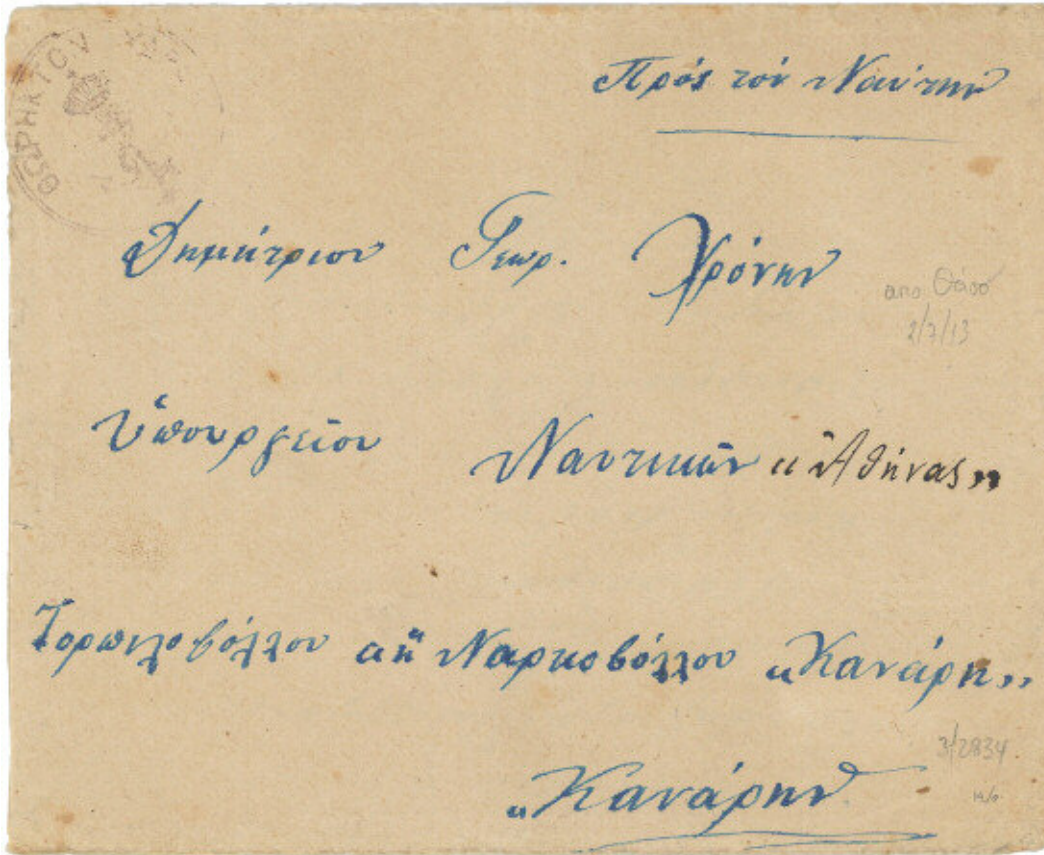 ΘΩΡΗΚΤΟΝ ΥΔΡ
Πρός τόν Ναύτην
Δημήτριον Γεωρ. Χρόνην
απο Θάσο
2/7/13
Ὑπουργείον Ναυτικῶν «Ἀθήνας»
Τορπιλοβόλλου ἢ Ναρκοβόλλου «Κανάρη»
3/2834
«Κανάρην